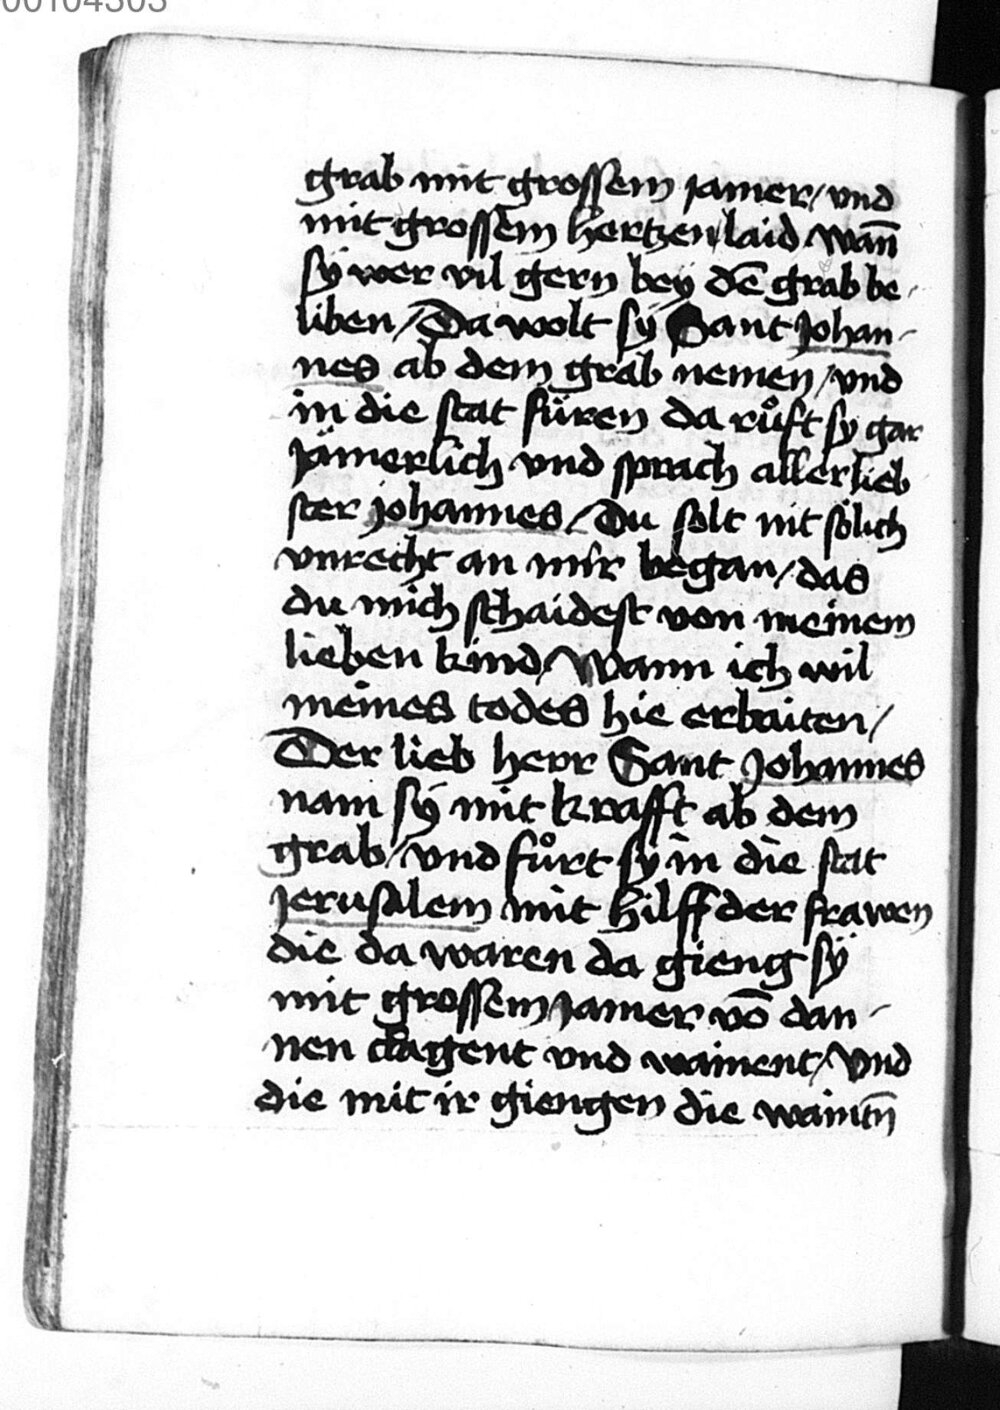 00104303
grab mit grossem jamer / vnd
mit grossem hertzen laid wan̄
sÿ wer vil gern beÿ dē grab be-
liben / Da wolt sÿ Sant Johan-
nes ab dem grab nemen / vnd
in die stat füren da růfft sy gar
Jämerlich vnd sprach allerlieb
ster johannes / Du solt nit sölich
vnrecht an mir began / das
du mich schaidest von meinem
lieben kind / Wann ich wil
meines todes hie erbaiten /
Der lieb herr Sant Johannes
nam sÿ mit krafft ab dem
grab / vnd fůrt sÿ in die stat
Jerusalem mit hilff der frawen
die da waren da gieng sÿ
mit grossem Jamer vō dan-
nen clagent vnd wainent / Vnd
die mit ir giengen die waintn̄